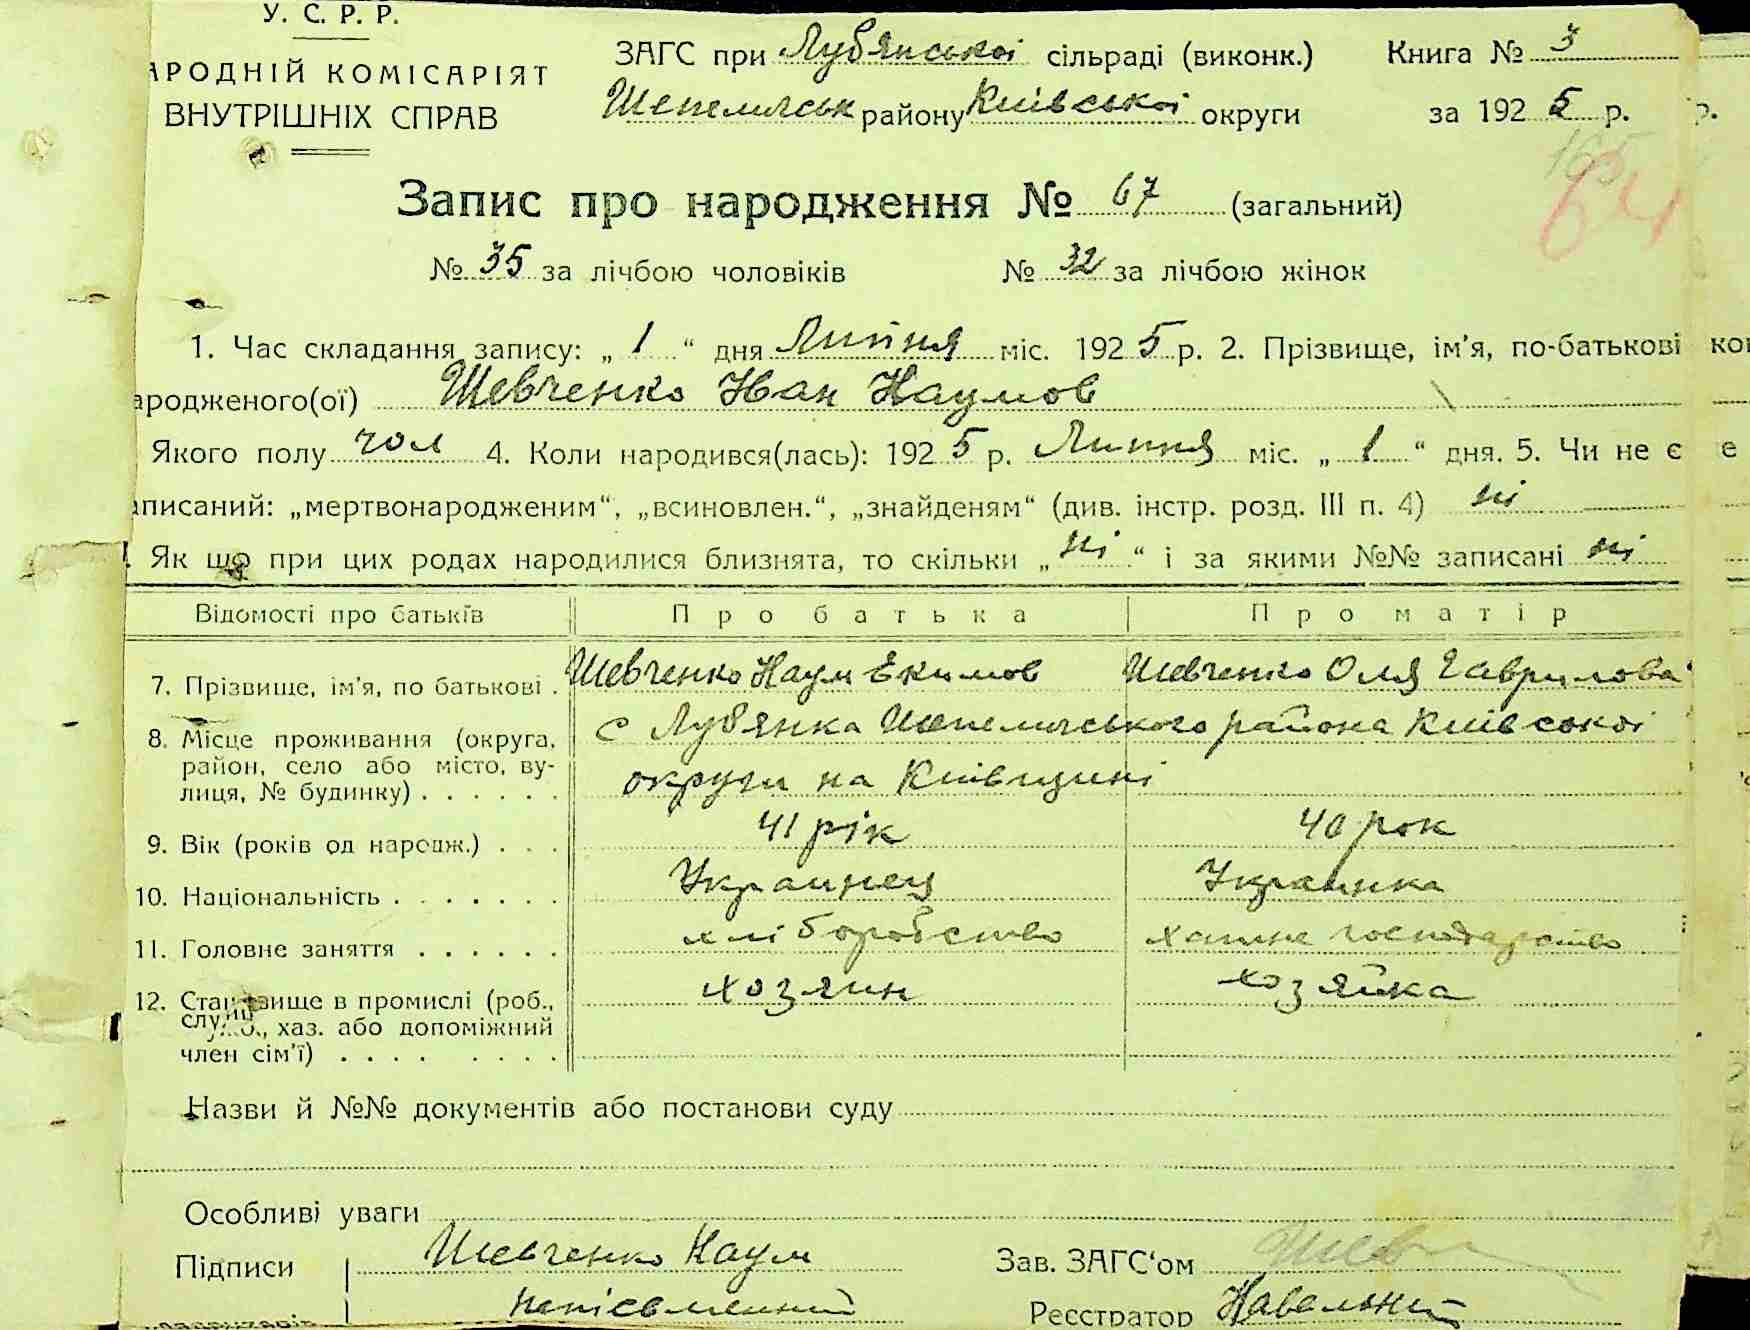 У. С. Р. Р.
АРОДНІЙ КОМІСАРІЯТ
ВНУТРІШНІХ СПРАВ
ЗАГС при Лубянської сільраді (виконк.) Книга № 3
Шепелическ району Київської округи за 1925 р.
165
64
Запис про народження № 67 (загальний)
№ 35 за лічбою чоловіків № 32 за лічбою жінок
1. Час складання запису: „ 1 “ дня Липня міс. 1925 р. 2. Прізвище, ім'я, по-батькові
ародженого(ої) Шевченко Иван Наумов
Якого полу чол 4. Коли народився(лась): 1925 р. Липня міс. „ 1 “ дня. 5. Чи не є
аписаний: „мертвонародженим“, „всиновлен.“, „знайденям“ (див. інстр. розд. III п. 4) ні
Як що при цих родах народилися близнята, то скільки „ ні “ і за якими №№ записані ні
Відомості про батьків Про батька Про матір
7. Прізвище, ім'я, по батькові . Шевченко Наум Екимов Шевченко Оля Гаврилова
8. Місце проживання (округа, район, село або місто, ву-лиця, № будинку) . . . . . . с Лубянка Шепелическького района Київської
округи на Київщині
9. Вік (років од народж.) . . . 41 рік 40 рок
10. Національність . . . . . . . Украинец Украинка
11. Головне заняття . . . . . . хліборобство хатне господарство
12. Становище в промислі (роб., служб., хаз. або допоміжний член сім'ї) . . . . . . . . хозяин хозяйка
Назви й №№ документів або постанови суду
Особливі уваги
Підписи Шевченко Наум Зав. ЗАГС‘ом Шев
неписьменний Реєстратор